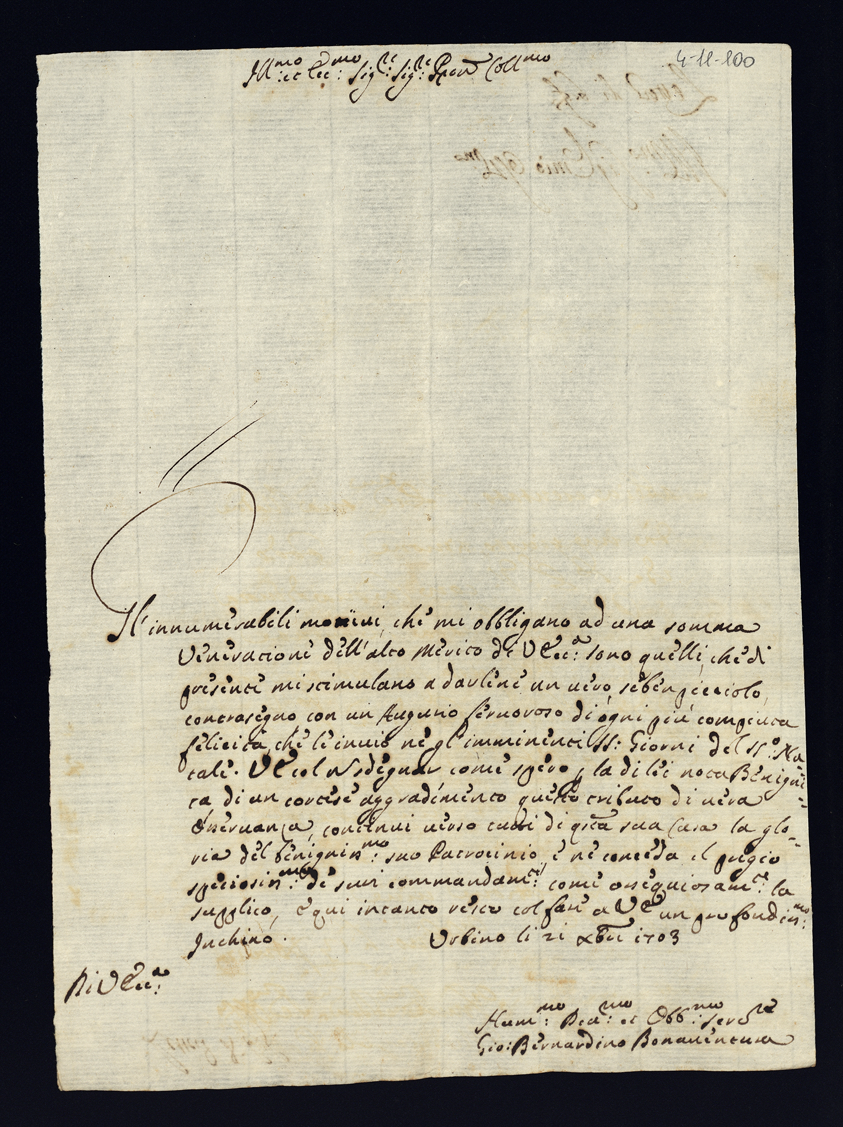 4-11-100
Ill.mo et Ecc.mo Sig.re Sig.re Pron Coll.mo
Gl'innumerabili motivi, che mi obbligano ad una somma
Venerazione dell'alto merito di V Ecc.a sono quelli, che di
presente mi stimulano a darlene un vero, se ben picciolo,
contrasegno con un Augurio fervoroso di ogni più compiuta
felicità, che le invio ne gl'imminenti SS: Giorni del SS.o Na=
tale. VE col non sdegnar come spero, la di lei nota Benigni=
tà di un cortese aggradimento questo tributo di vera
Osservanza, continui verso tutti di q.sta sua Casa la glo=
ria del benignis.mo suo Patrocinio, e ne conceda il pregio
speciosis.mo de suoi commandam.ti come ossequiosam.te la
supplico, e qui intanto resto col fare a VE un profondis.mo
Inchino.
Urbino li 21 xbre 1703
Di V Ecc.a
Hum.mo Dev.mo et Obb.mo Ser.re
Gio: Bernardino Bonaventura